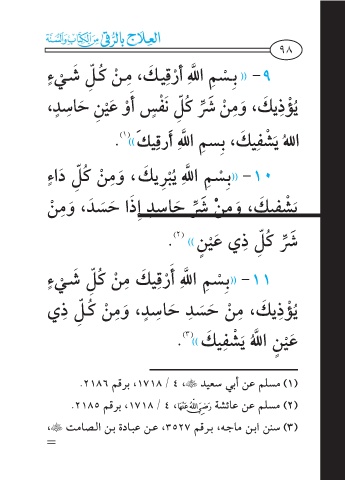 العلاج بالرقى من الكتاب والسنة
٩٨
٩- «بِسْمِ اللَّهِ أَرْقِيكَ، مِنْ كُلِّ شَيْءٍ
يُؤْذِيكَ، وَمِنْ شَرِّ كُلِّ نَفْسٍ أَوْ عَيْنِ حَاسِدٍ،
اللهُ يَشْفِيكَ، بِسمِ اللَّهِ أَرقِيكَ»(١).
١٠- «بِسْمِ اللَّهِ يُبْرِيكَ، وَمِنْ كُلِّ دَاءٍ
يَشْفِيكَ، وَمِنْ شَرِّ حَاسِدٍ إِذَا حَسَدَ، وَمِنْ
شَرِّ كُلِّ ذِي عَيْنٍ»(٢).
١١- «بِسْمِ اللَّهِ أَرْقِيكَ مِنْ كُلِّ شَيْءٍ
يُؤْذِيكَ، مِنْ حَسَدِ حَاسِدٍ، وَمِنْ كُلِّ ذِي
عَيْنٍ اللَّهُ يَشْفِيكَ»(٣).
(١) مسلم عن أبي سعيد ﷺ، ٤ / ١٧١٨، برقم ٢١٨٦.
(٢) مسلم عن عائشة رَضِيَ اللَّهُ عَنْهَا، ٤ / ١٧١٨، برقم ٢١٨٥.
(٣) سنن ابن ماجه، برقم ٣٥٢٧، عن عبادة بن الصامت ،
=